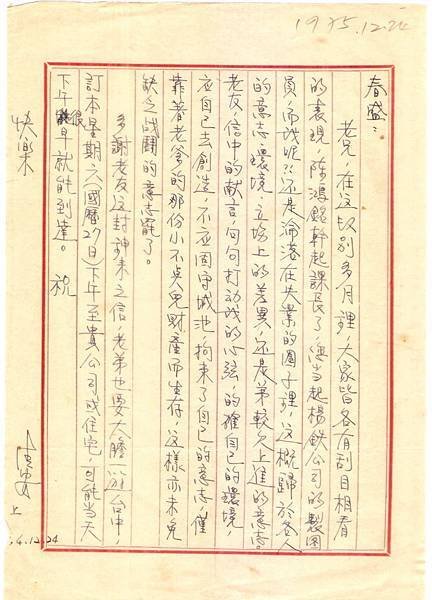 1975.12.24
春盛:
老兄,在這段別多月裡,大家皆各有刮目相看
的表現,陳鴻銘幹起課長了,您当起楊鉄公司的製圖
員,而我呢?还是淪落在失業的圈子裡,这概歸於各人
的意志、環境、立场上的差異,还是弟較欠上進的意志。
老友,信中的献言,句句打动我的心弦,的確自己的環境,
应自己去創造,不应固守城池,拘束了自己的意志,僅
靠着老爸的那份小不点免財產而生存,这樣亦未免
缺乏战鬪的意志罷了。
多謝老友这封神来之信,老弟也要大膽 台中,
訂本星期六(國曆27日)下午至貴公司或住宅,可能当天
下午很早就能到達。 祝
快樂
上
4.12.24